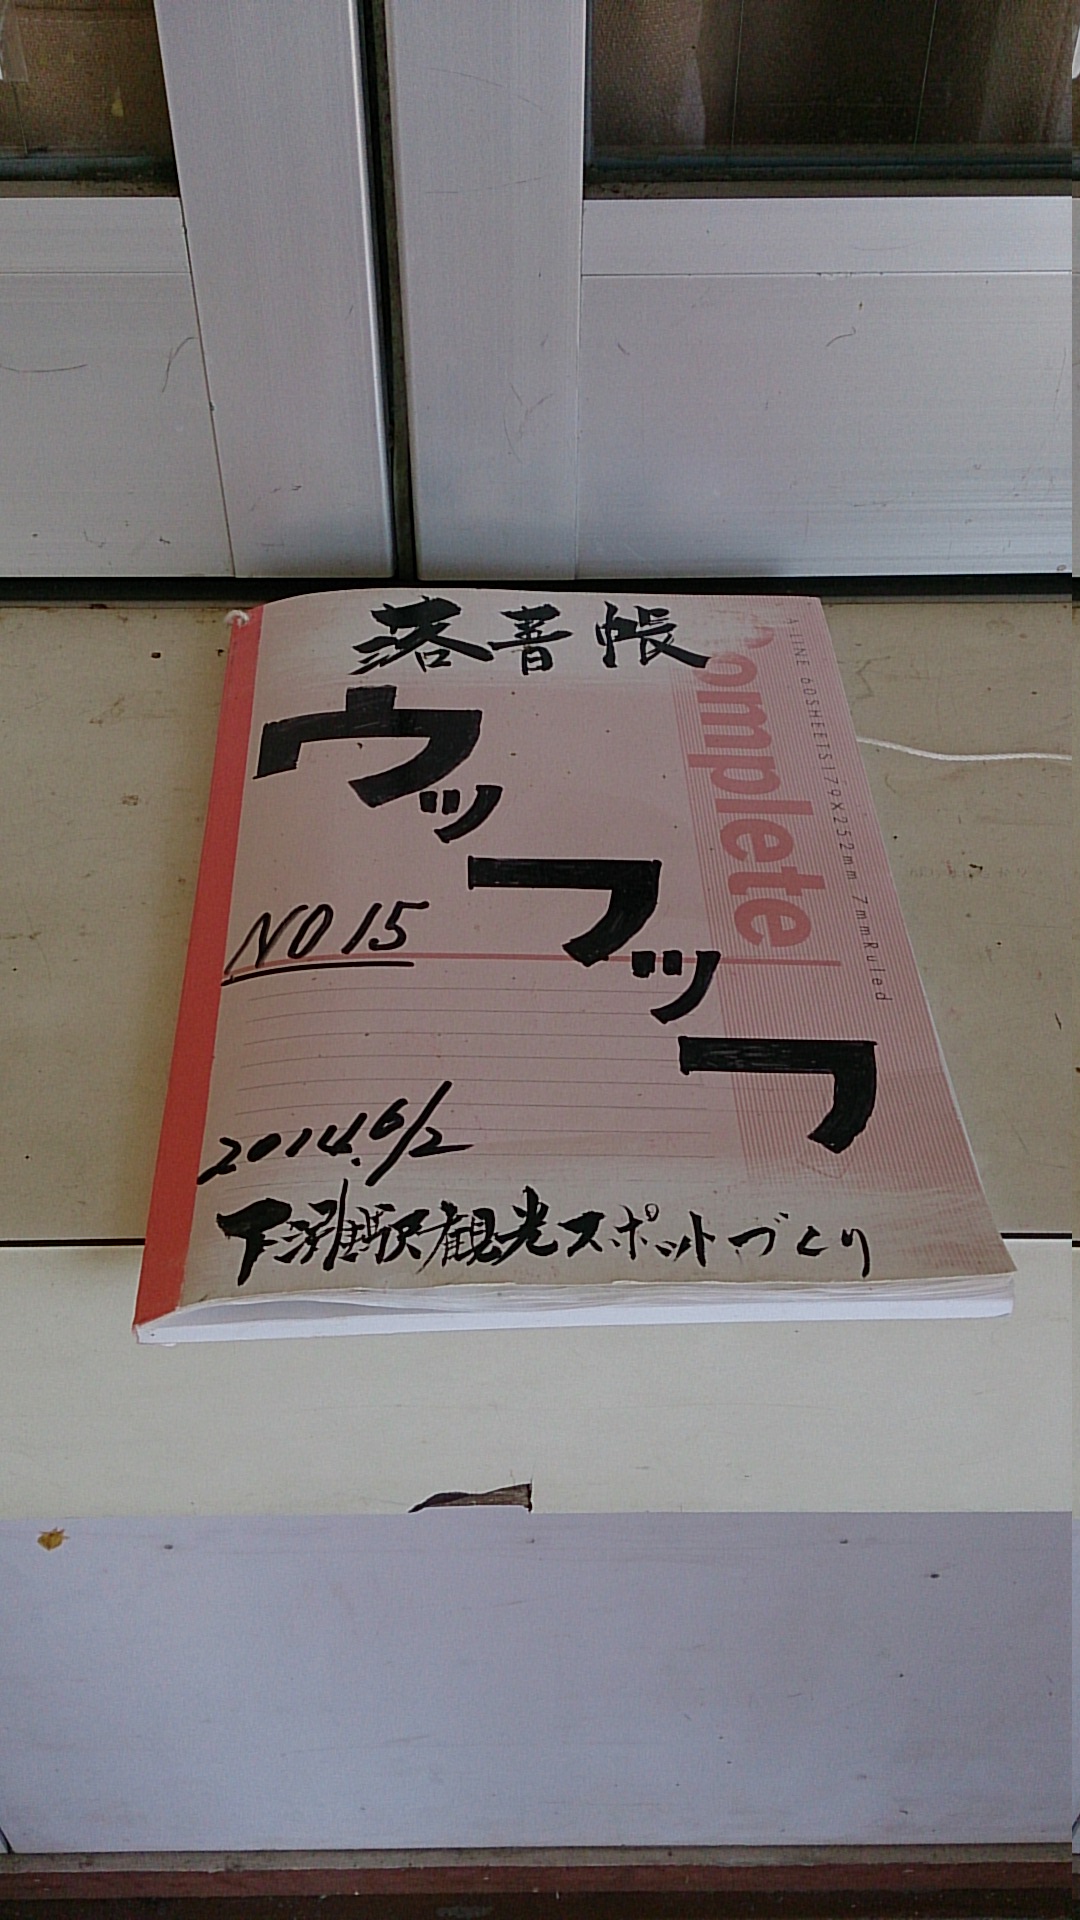 落書帳
ウッフッフ
NO 15
2014.6/2
下灘駅観光スポットづくり
Complete
A-LINE 60SHEETS 179×252mm 7mmRuled